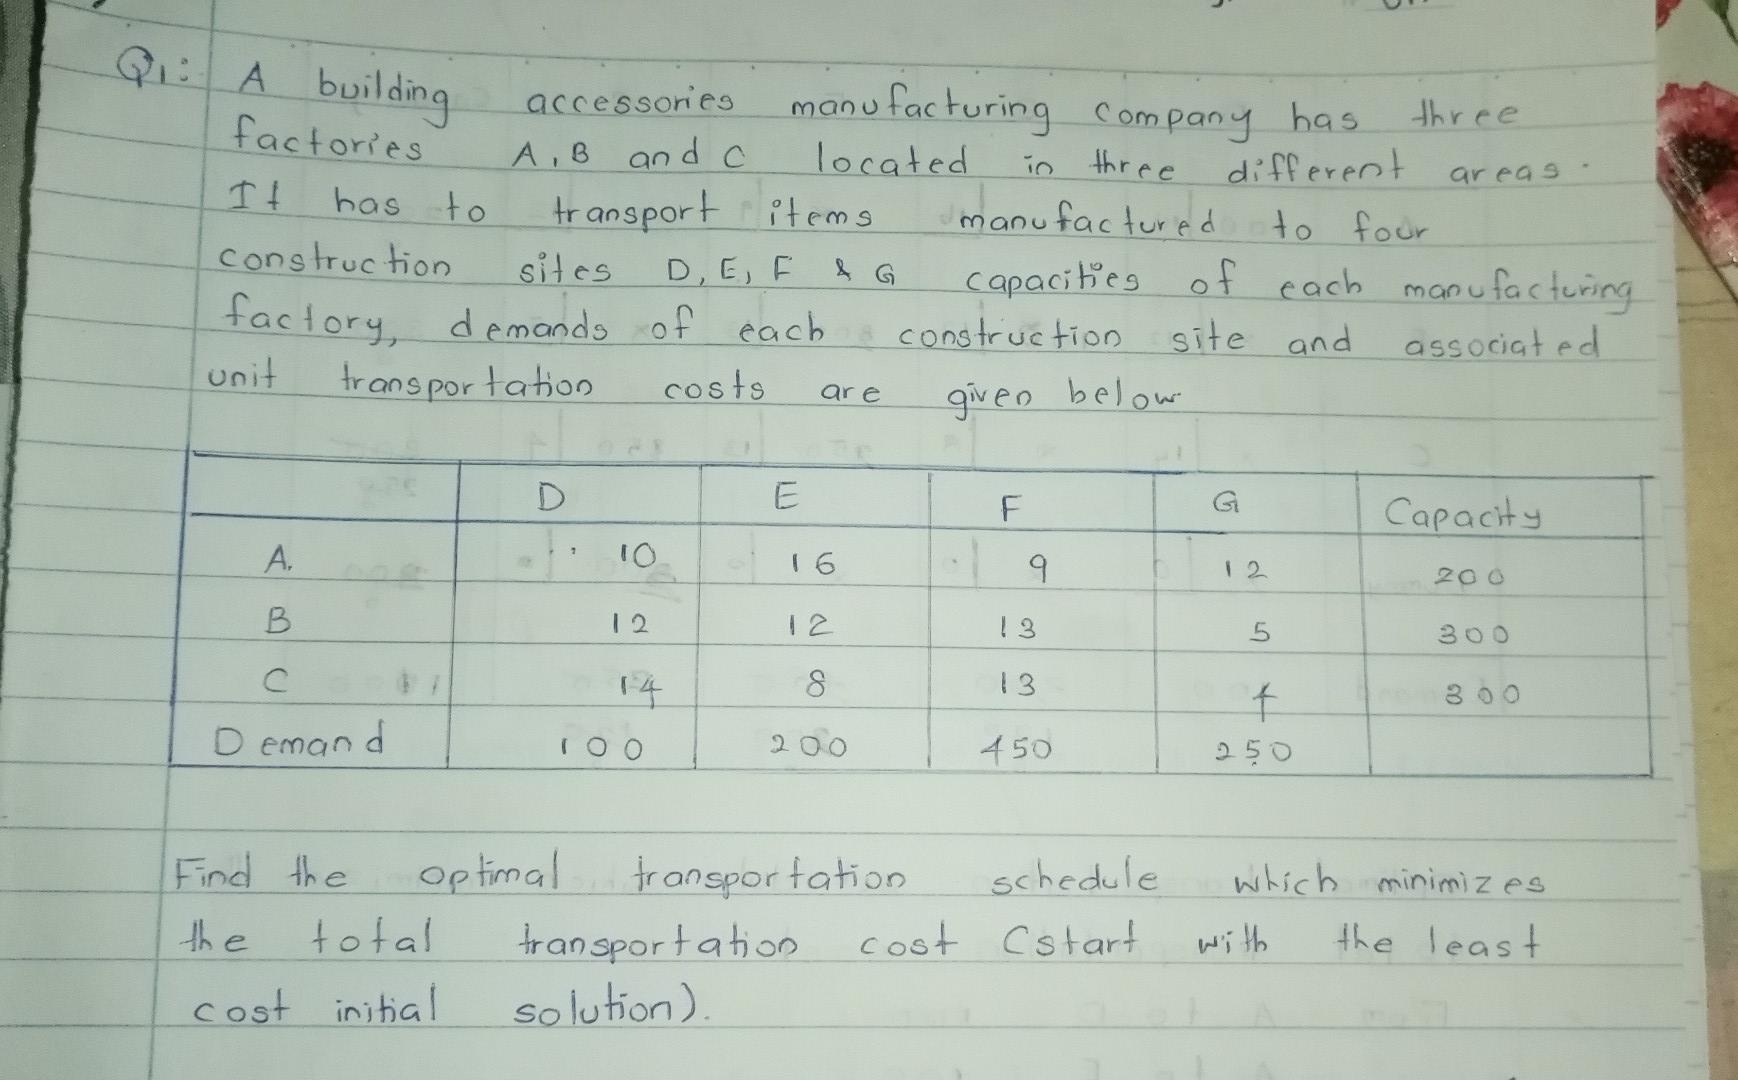 Q1: A building accessories manufacturing company has three
factories A, B and C located in three different areas.
It has to transport items manufactured to four
construction sites D, E, F & G capacities of each manufacturing
factory, demands of each construction site and associated
unit transportation costs are given below
D E F G Capacity
A. 10 16 9 12 200
B 12 12 13 5 300
C 14 8 13 4 300
Demand 100 200 450 250
Find the optimal transportation schedule which minimizes
the total transportation cost (start with the least
cost initial solution).